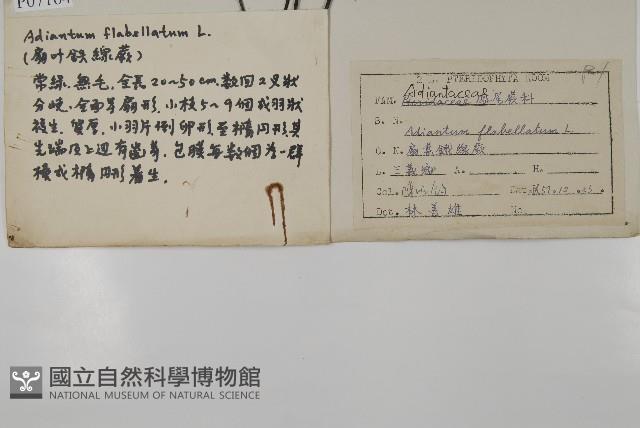 P07104
Adiantum flabellatum L.
(扇叶铁線蕨)
常緑.無毛.全長20~50cm.数回2叉狀
分岐.全面呈扇形.小枝5~9個成羽狀
複生.質厚.小羽片倒卵形至橢円形.其
先端及上辺有齒芽.包膜每数個為一群
橫或橢円形着生.
PTERIDOPHYTA ROOM
FAM. Adiantaceae 鐵尾蕨科
S. N.
Adiantum flabellatum L.
C. N. 扇葉鐵線蕨
L. 三義鄉 A. H.
Col. Date 57.12.25.
Det. 林善雄 No.
國立自然科學博物館
NATIONAL MUSEUM OF NATURAL SCIENCE